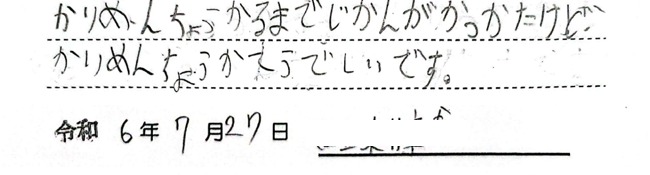 かりめんちょうかるまでじかんがかっかたけど
かりめんちょうかてうでしいです。
令和 6年 7月27日